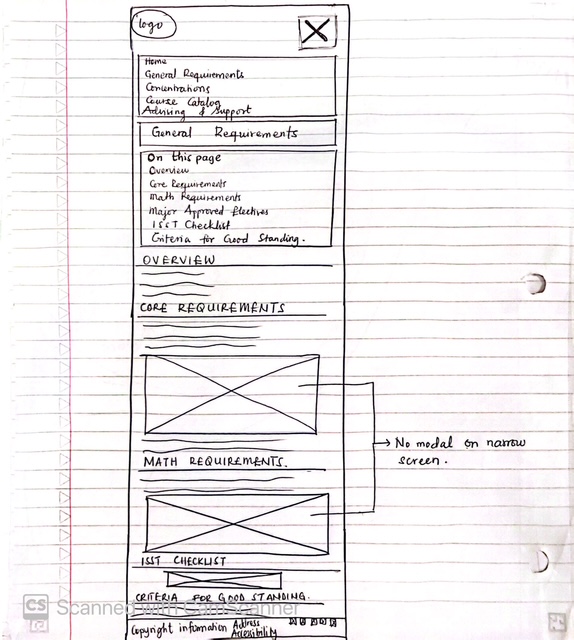 logo
Home
General Requirements
Concentrations
Course Catalog
Advising & Support
General Requirements
On this page
Overview
Core Requirements
Math Requirements
Major Approved Electives
ISST Checklist
Criteria for Good Standing.
OVERVIEW
CORE REQUIREMENTS
→ No modal on narrow
screen.
MATH REQUIREMENTS.
ISST CHECKLIST
CRITERIA FOR GOOD STANDING.
CS Scanned with CamScanner
Copyright information Address
Accessibility